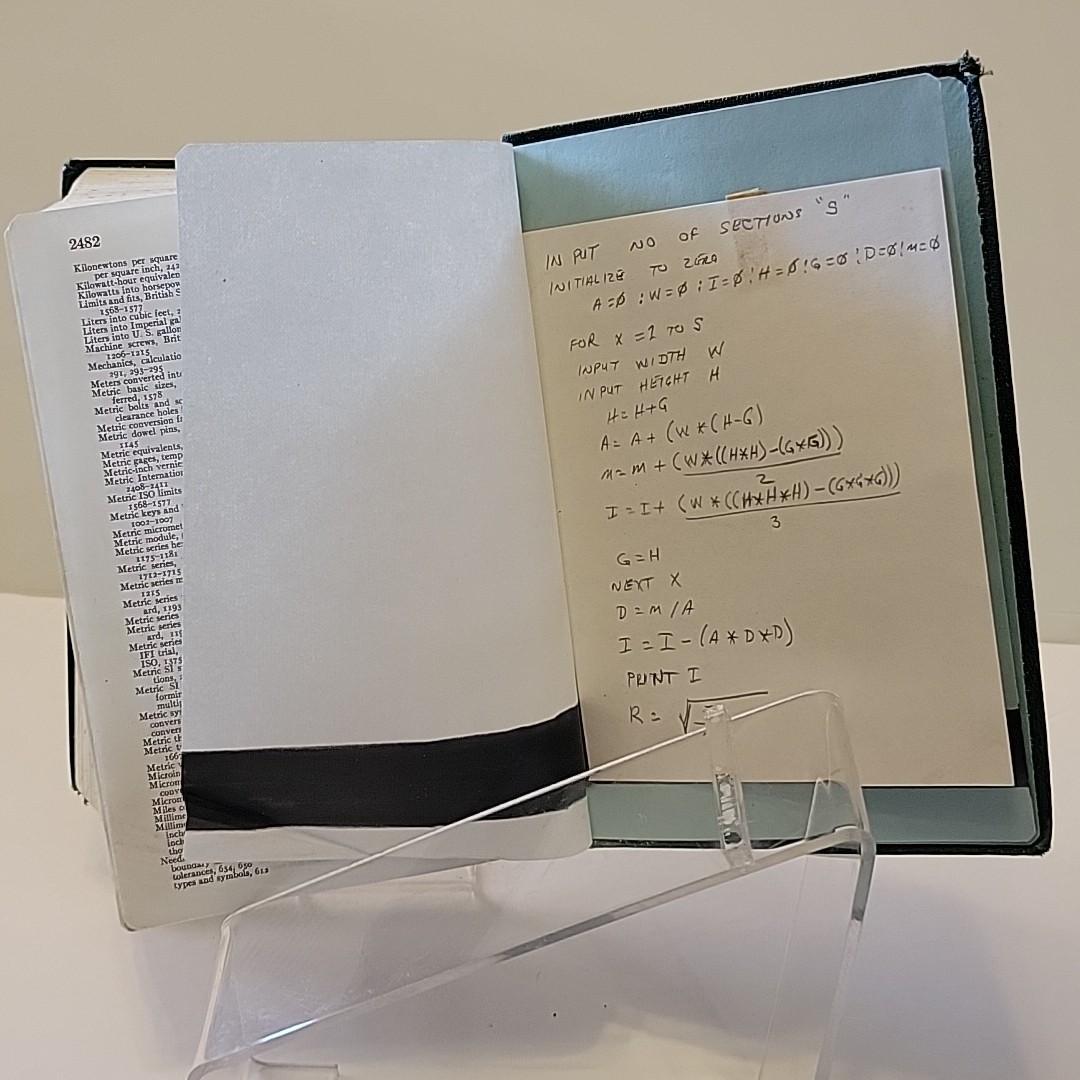 2482
Kilonewtons per square
per square inch, 242
Kilowatt-hour equivalen
Kilowatts into horsepow
Limits and fits, British S
1568-1577
Liters into cubic feet, 2
Liters into Imperial ga
Liters into U. S. gallon
Machine screws, Brit
1206-1215
Mechanics, calculatio
291, 293-295
Meters converted int
Metric basic sizes,
ferred, 1578
Metric bolts and sc
clearance holes
Metric conversion f
Metric dowel pins,
1145
Metric equivalents,
Metric gages, temp
Metric-inch vernie
Metric Internation
2408-2411
Metric ISO limits
1568-1577
Metric keys and
1002-1007
Metric micromet
Metric module,
Metric series he
1175-1181
Metric series,
1712-1715
Metric series m
1215
Metric series
ard, 1193
Metric series
ard, 115
Metric series
IFI trial,
ISO, 1375
Metric SI s
tions,
Metric SI
formin
multip
Metric sy
convers
convers
Metric th
Metric t
166
Metric
Microin
Microm
conv
Micron
Miles
Millime
Millim
inch
inch
tho
Need
boundary
tolerances, 634, 650
types and symbols, 612
INPUT NO OF SECTIONS "S"
INITIALIZE TO ZERO
A=Ø : W=Ø : I=Ø : H=Ø : G=Ø : D=Ø : M=Ø
FOR X = 1 TO S
INPUT WIDTH W
INPUT HEIGHT H
H = H+G
A = A + (W * (H-G)
M = M + (W*((H*H)-(G*G)))
2
I = I + (W*((H*H*H)-(G*G*G)))
3
G = H
NEXT X
D = M/A
I = I - (A * D*D)
PRINT I
R = √